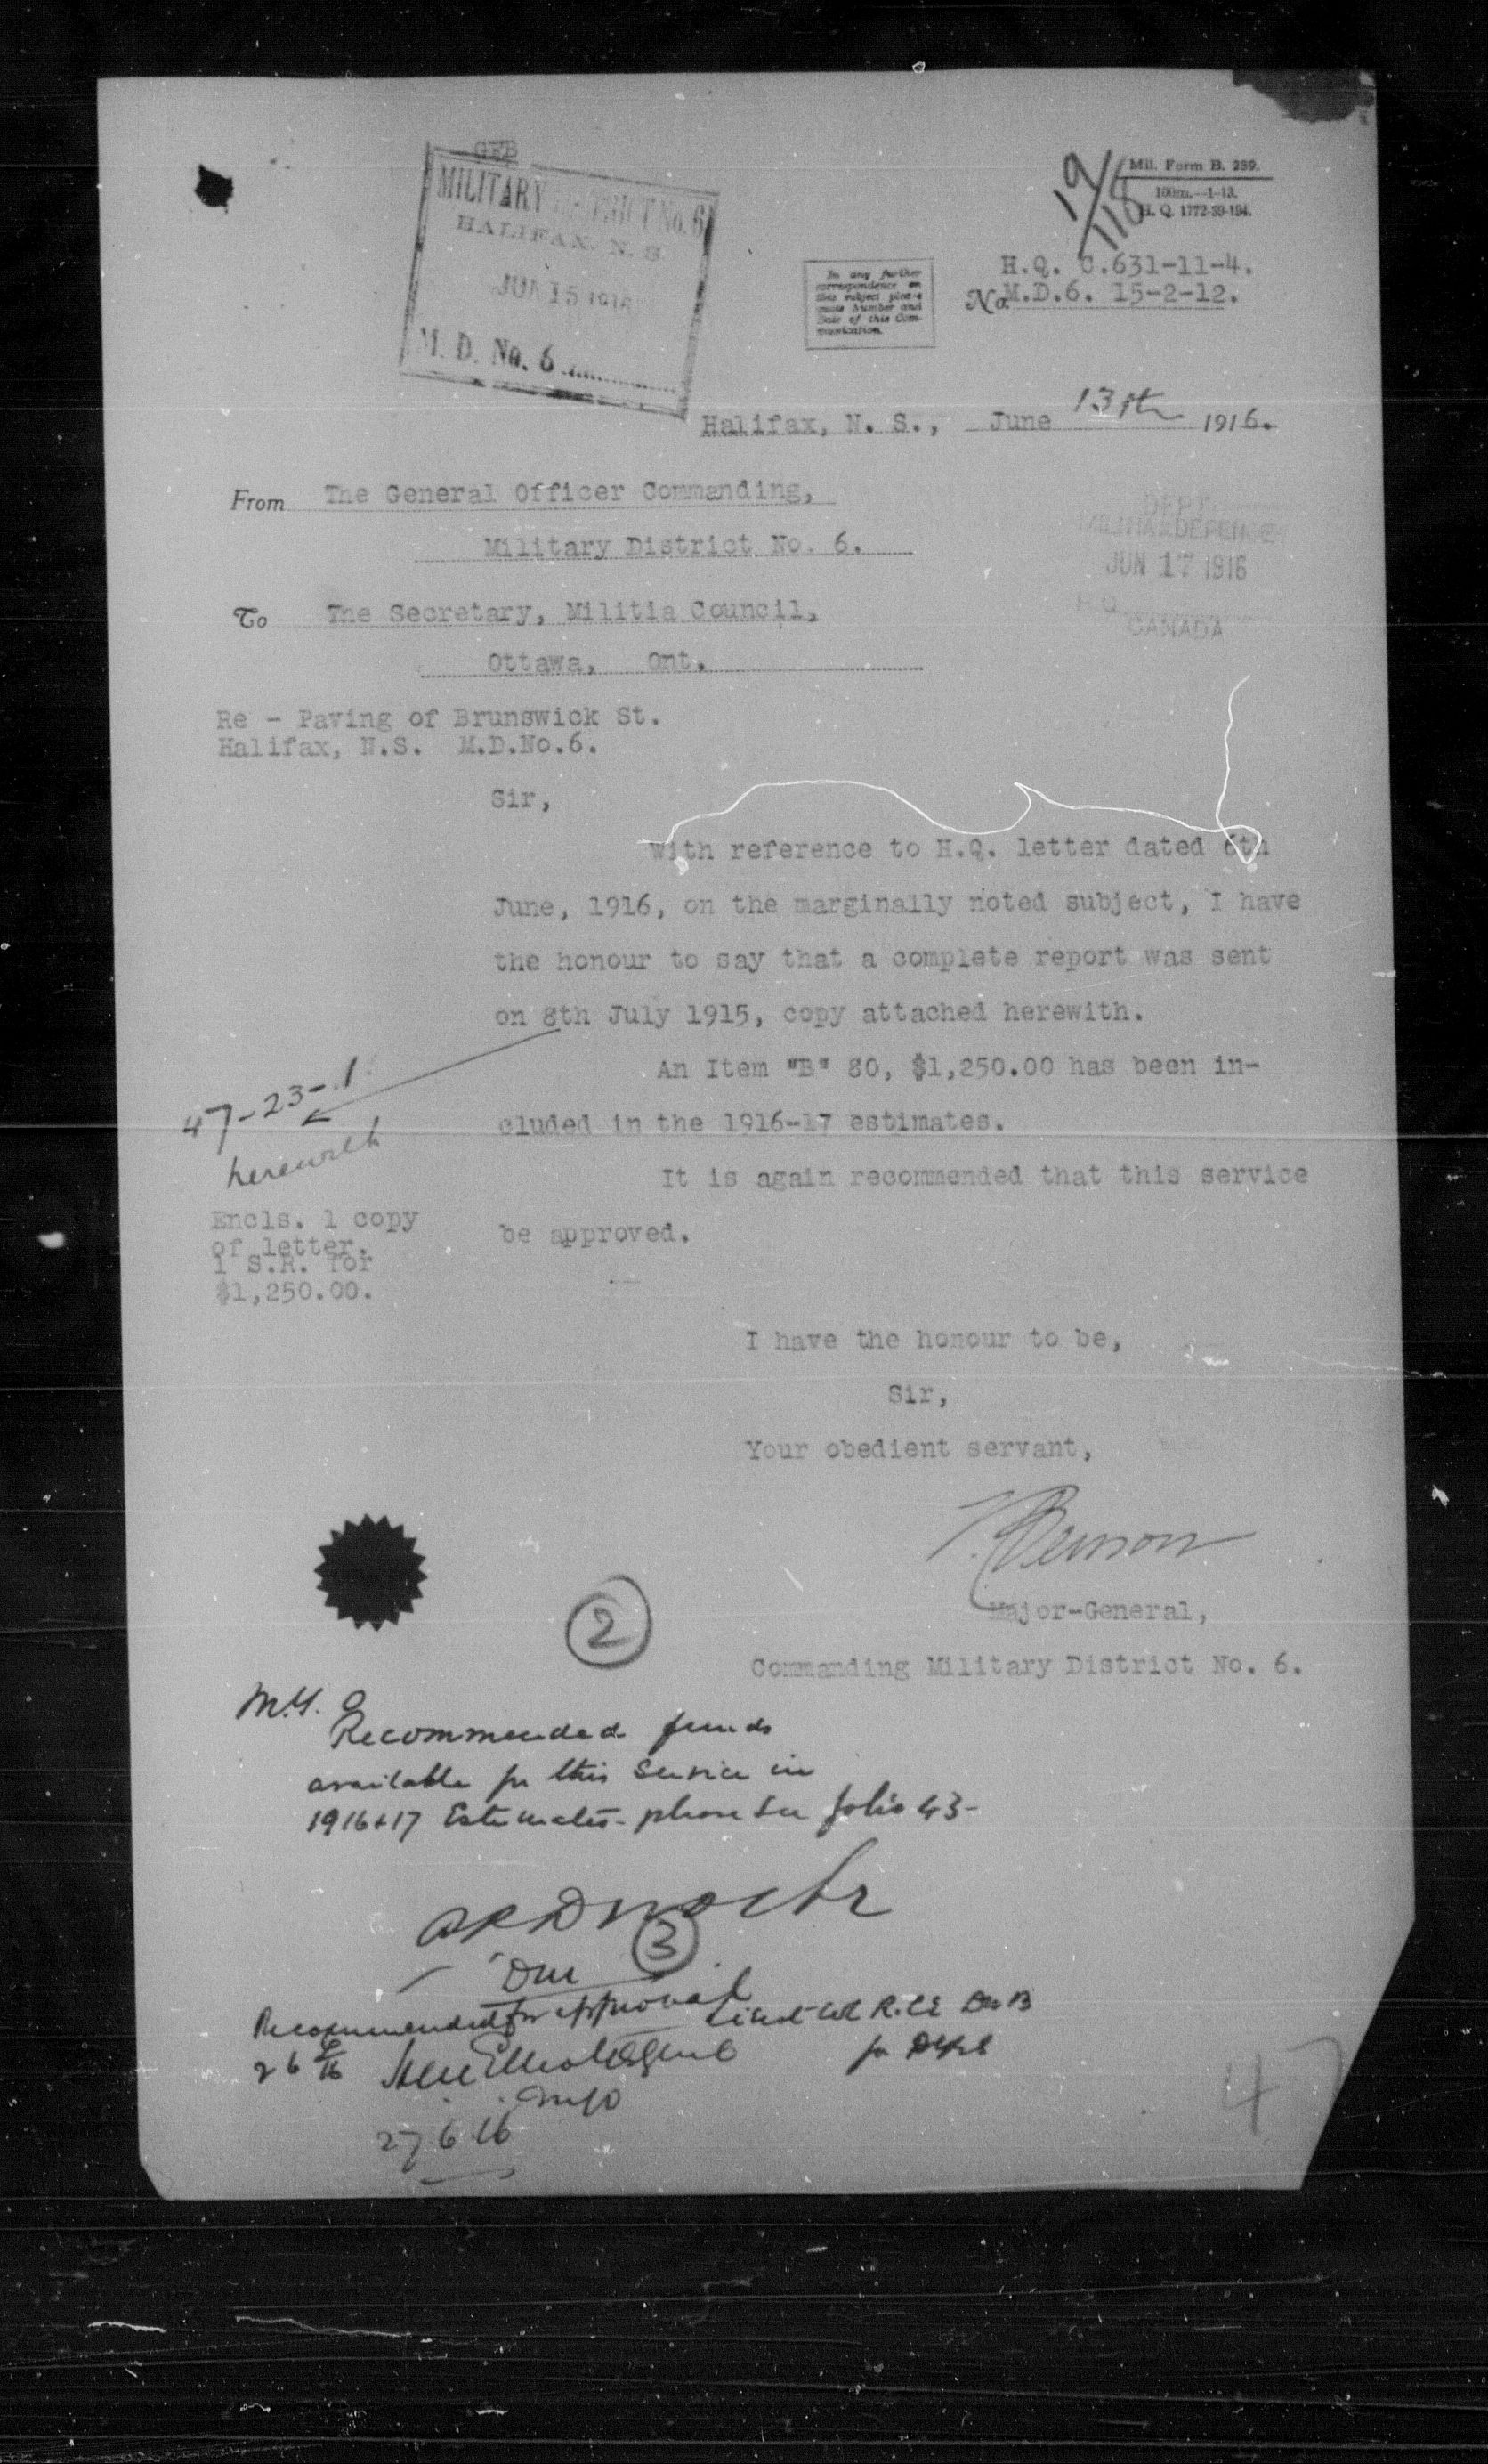 GEB
MILITARY DISTRICT No. 6
HALIFAX. N. S.
JUN 15 1916
M. D. No. 6
19/118
Mil. Form B. 239.
100m.—1-13.
H. Q. 1772-39-194.
In any further
correspondence on
this subject please
quote Number and
Date of this Com-
munication.
H.Q. C.631-11-4.
No. M.D.6. 15-2-12.
Halifax, N. S., June 13th 1916.
From The General Officer Commanding,
Military District No. 6.
DEPT.
MILITIA & DEFENCE
JUN 17 1916
H.Q.
CANADA
To The Secretary, Militia Council,
Ottawa, Ont.
Re - Paving of Brunswick St.
Halifax, N.S. M.D.No.6.
Sir,
With reference to H.Q. letter dated 6th
June, 1916, on the marginally noted subject, I have
the honour to say that a complete report was sent
on 8th July 1915, copy attached herewith.
An Item "B" 80, $1,250.00 has been in-
cluded in the 1916-17 estimates.
47-23-1
herewith
It is again recommended that this service
be approved.
Encls. 1 copy
of letter.
1 S.R. for
$1,250.00.
I have the honour to be,
Sir,
Your obedient servant,
Benson
Major-General,
Commanding Military District No. 6.
2
M.G.O
Recommended funds
available for this Service in
1916+17 Estimates - please see folio 43-
3
Recommended for approval
Lieut Col R.C.E.
26 6/16
for
MGO
27 6 16
47